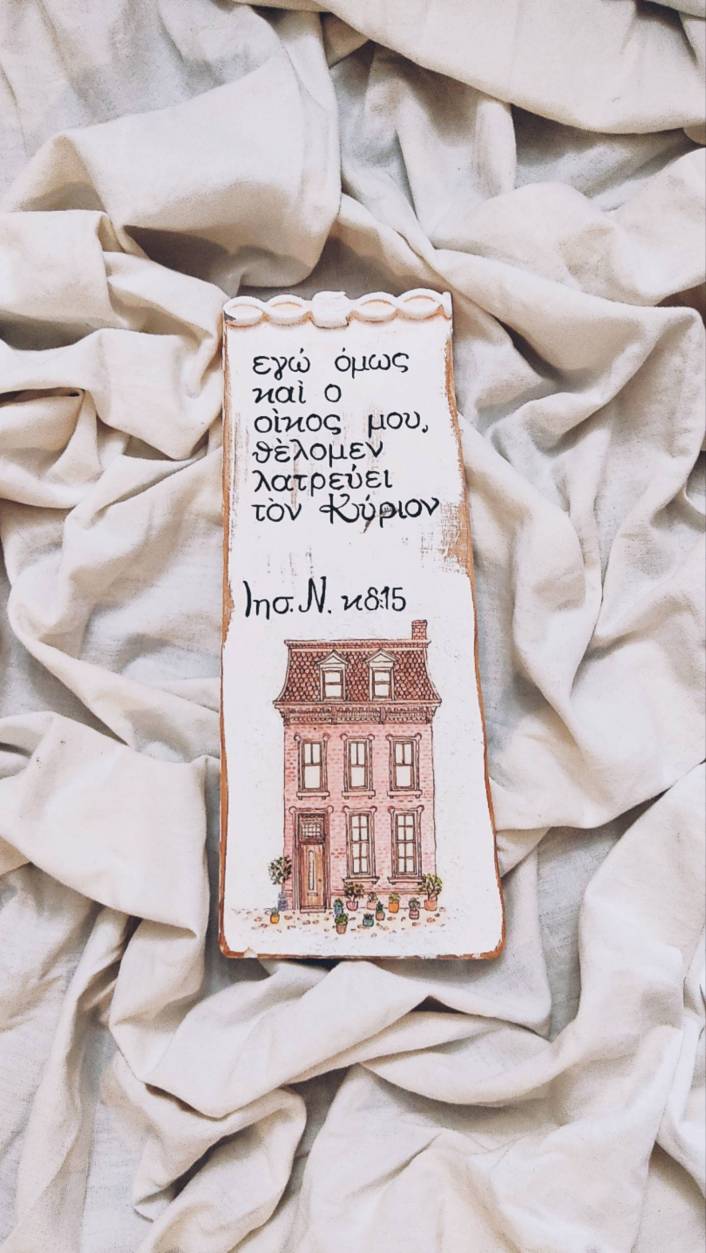 εγώ όμως
καὶ ο
οἶκος μου,
θὲλομεν
λατρεύει
τὸν Κύριον
Ιησ. Ν. κδ:15